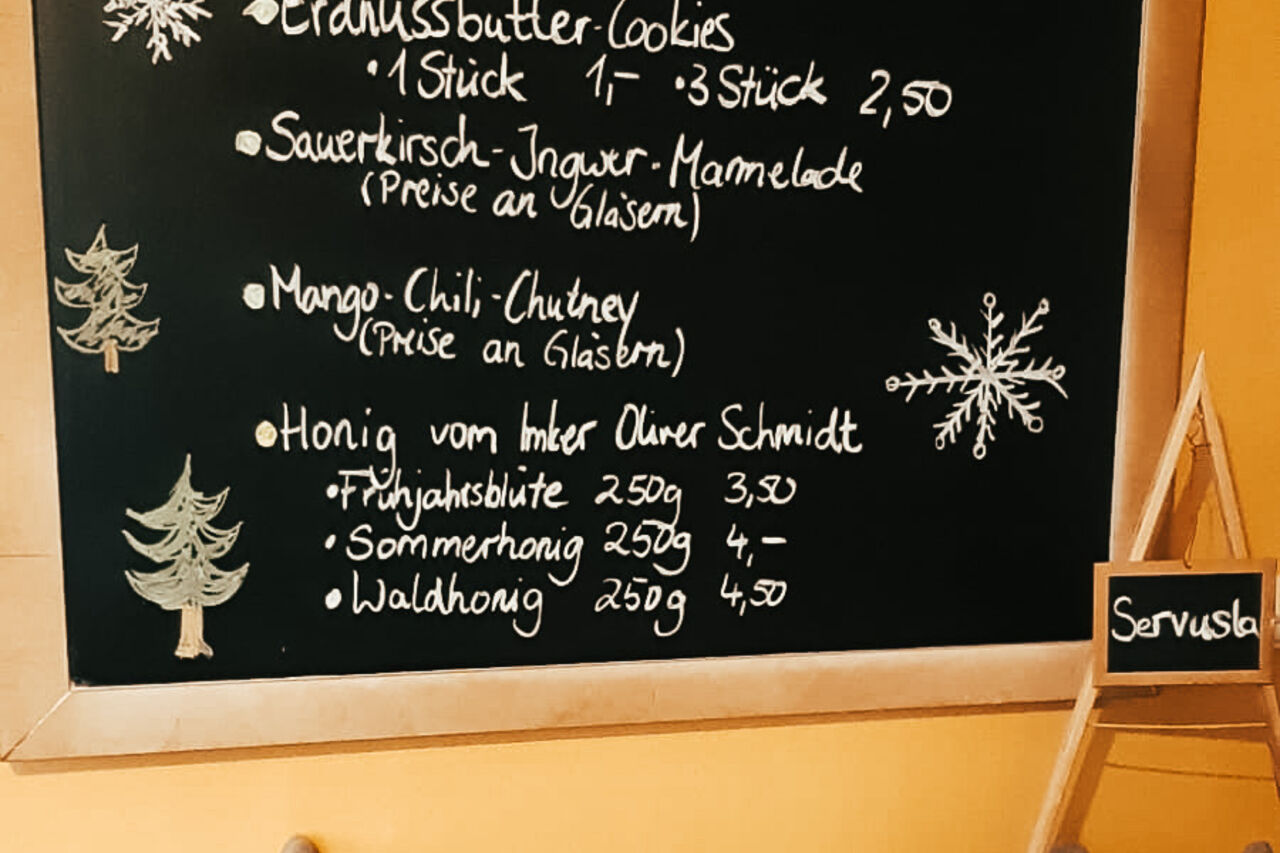 Erdnussbutter-Cookies
•1 Stück 1,- •3 Stück 2,50
•Sauerkirsch-Ingwer-Marmelade
(Preise an Gläsern)
•Mango-Chili-Chutney
(Preise an Gläsern)
•Honig vom Imker Oliver Schmidt
•Frühjahrsblüte 250g 3,50
•Sommerhonig 250g 4,-
•Waldhonig 250g 4,50
Servusla